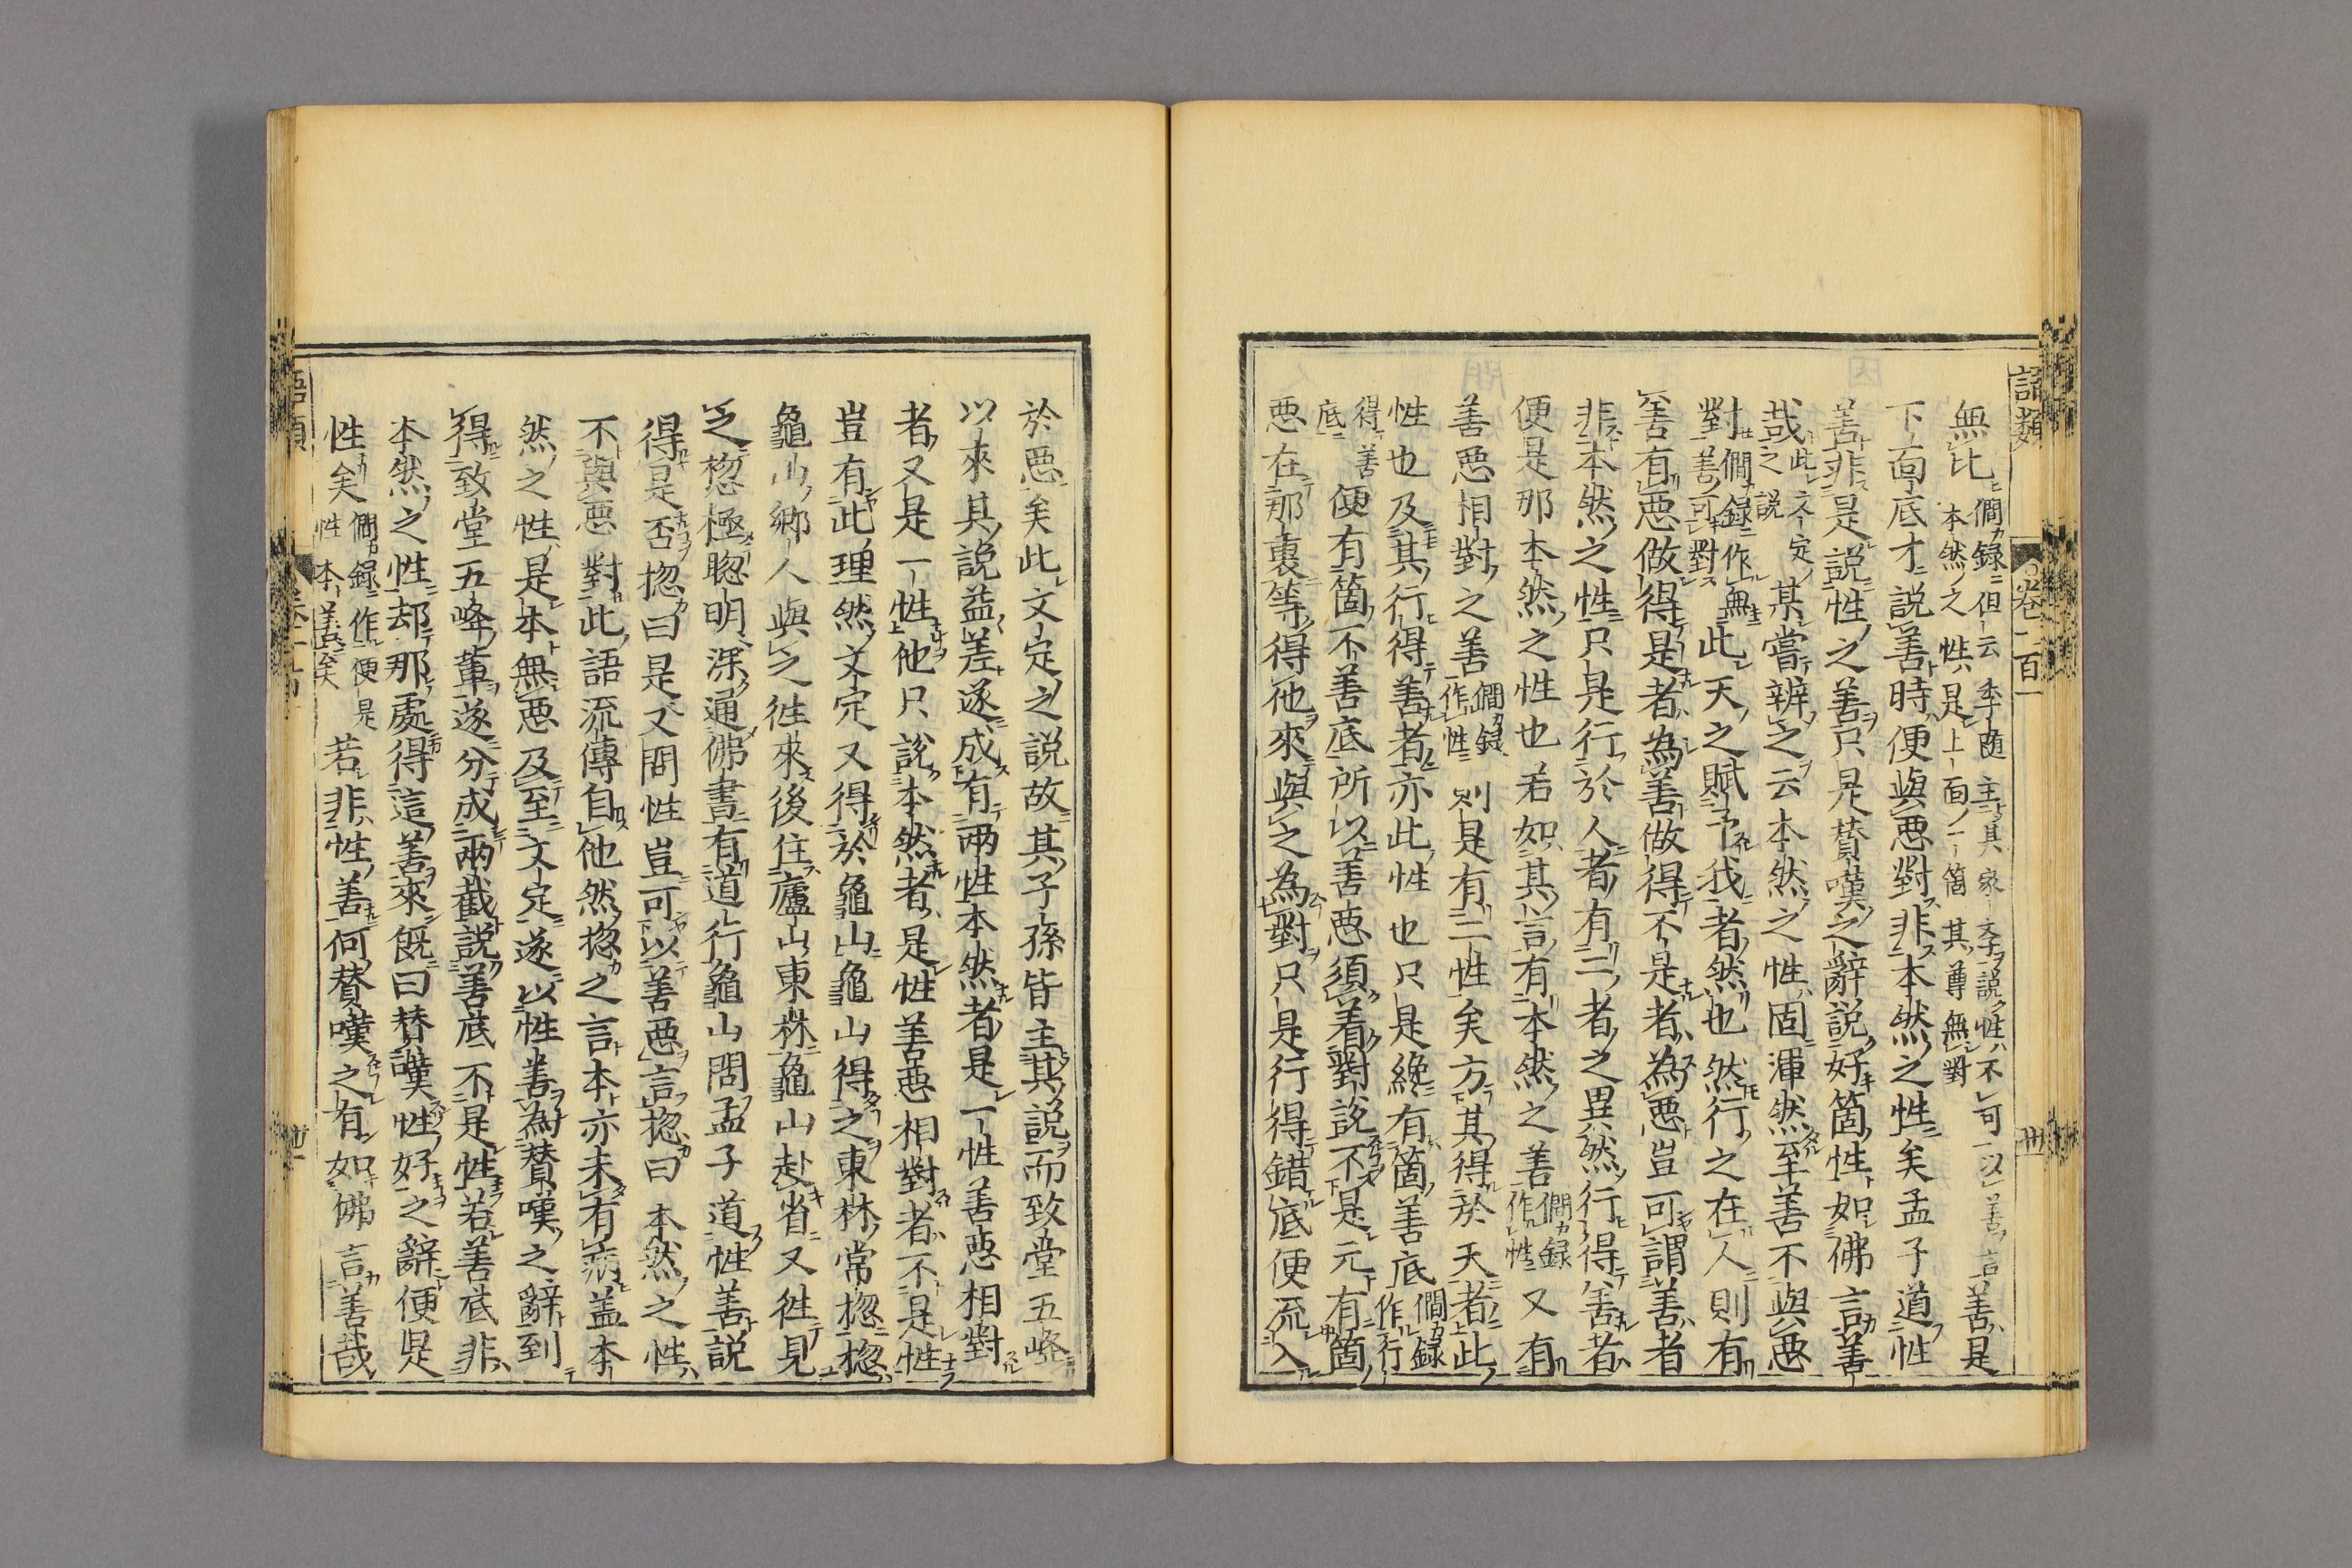 語類 卷一百一 丗
無比 僩録但云季随主其家學説性不可以善言善是
本然之性是上面一箇其尊無對
下面底才説善時便與惡對非本然之性矣孟子道性
善非是説性之善只是賛嘆之辭説好箇性如佛言善
哉 此文定之説 某嘗辨之云本然之性固渾然至善不與惡
對 僩録作無善可對 此天之賦予我者然也然行之在人則有
善有惡做得是者為善做得不是者為惡豈可謂善者
非本然之性只是行於人者有二者之異然行得善者
便是那本然之性也若如其言有本然之善 僩録作性 又有
善惡相對之善 僩録作性 則是有二性矣方其得於天者此
性也及其行得善者亦此性也只是纔有箇善底 僩録作行
得善底 便有箇不善底所以善惡須着對説不是元有箇
惡在那裏等得他來與之為對只是行得錯底便流入
於惡矣此文定之説故其子孫皆主其説而致堂五峰
以來其説益差遂成有兩性本然者是一性善惡相對
者又是一性他只説本然者是性善惡相對者不是性
豈有此理然文定又得於龜山龜山得之東林常惚惚
龜山鄉人與之徃來後住廬山東林龜山赴省又徃見
之惚極聰明深通佛書有道行龜山問孟子道性善説
得是否惚曰是又問性豈可以善惡言惚曰本然之性
不與惡對此語流傳自他然惚之言本亦未有病盖本
然之性是本無惡及至文定遂以性善為賛嘆之辭到
得致堂五峰輩遂分成兩截説善底不是性若善底非
本然之性却那處得這善來既曰賛嘆性好之辭便是
性矣 僩録作便是性本善矣 若非性善何賛嘆之有如佛言善哉